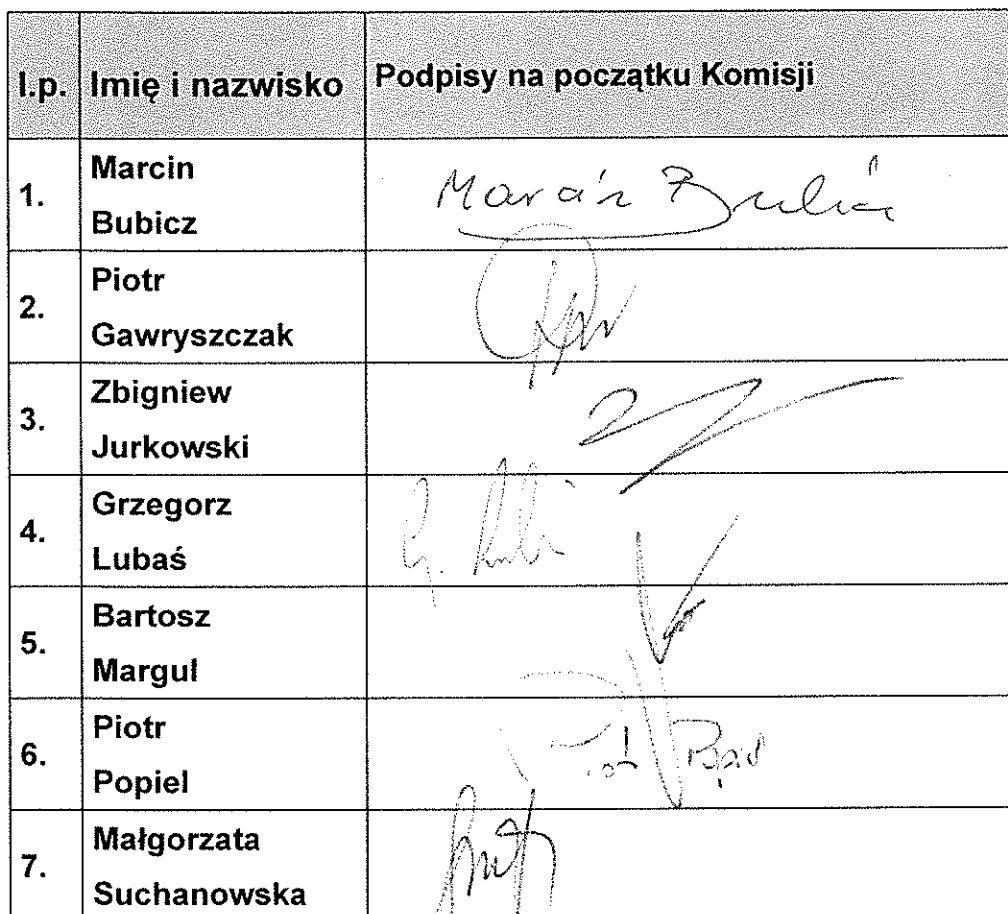 l.p. Imię i nazwisko Podpisy na początku Komisji
1. Marcin Bubicz Marcin
2. Piotr Gawryszczak
3. Zbigniew Jurkowski
4. Grzegorz Lubaś G.
5. Bartosz Margul
6. Piotr Popiel
7. Małgorzata Suchanowska